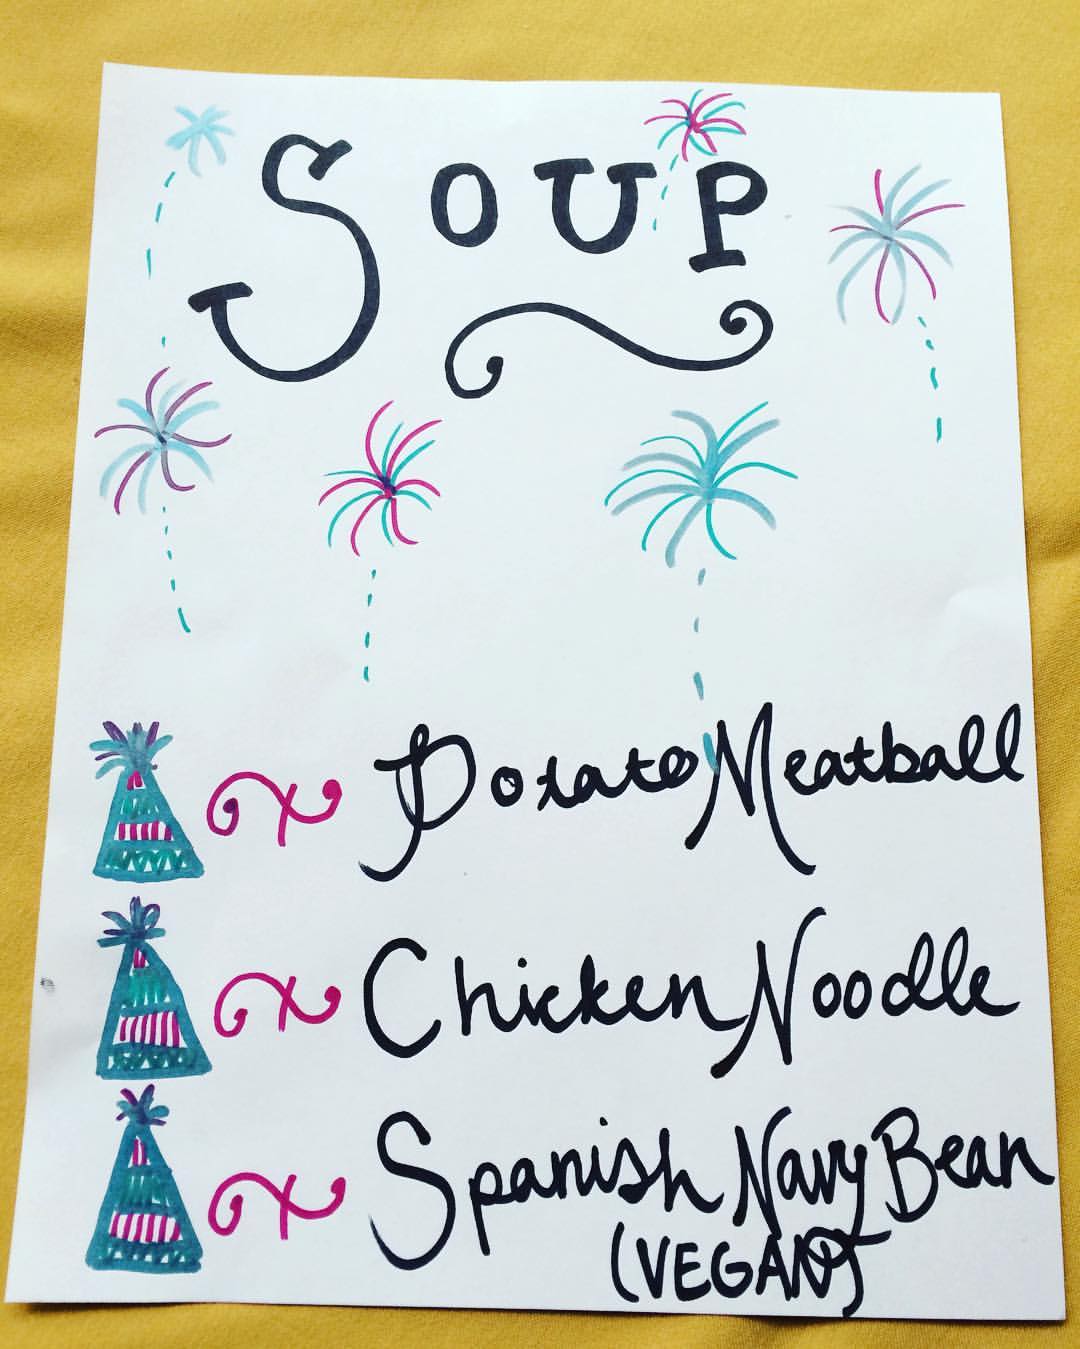 SOUP
Potato Meatball
Chicken Noodle
Spanish Navy Bean
(VEGAN)